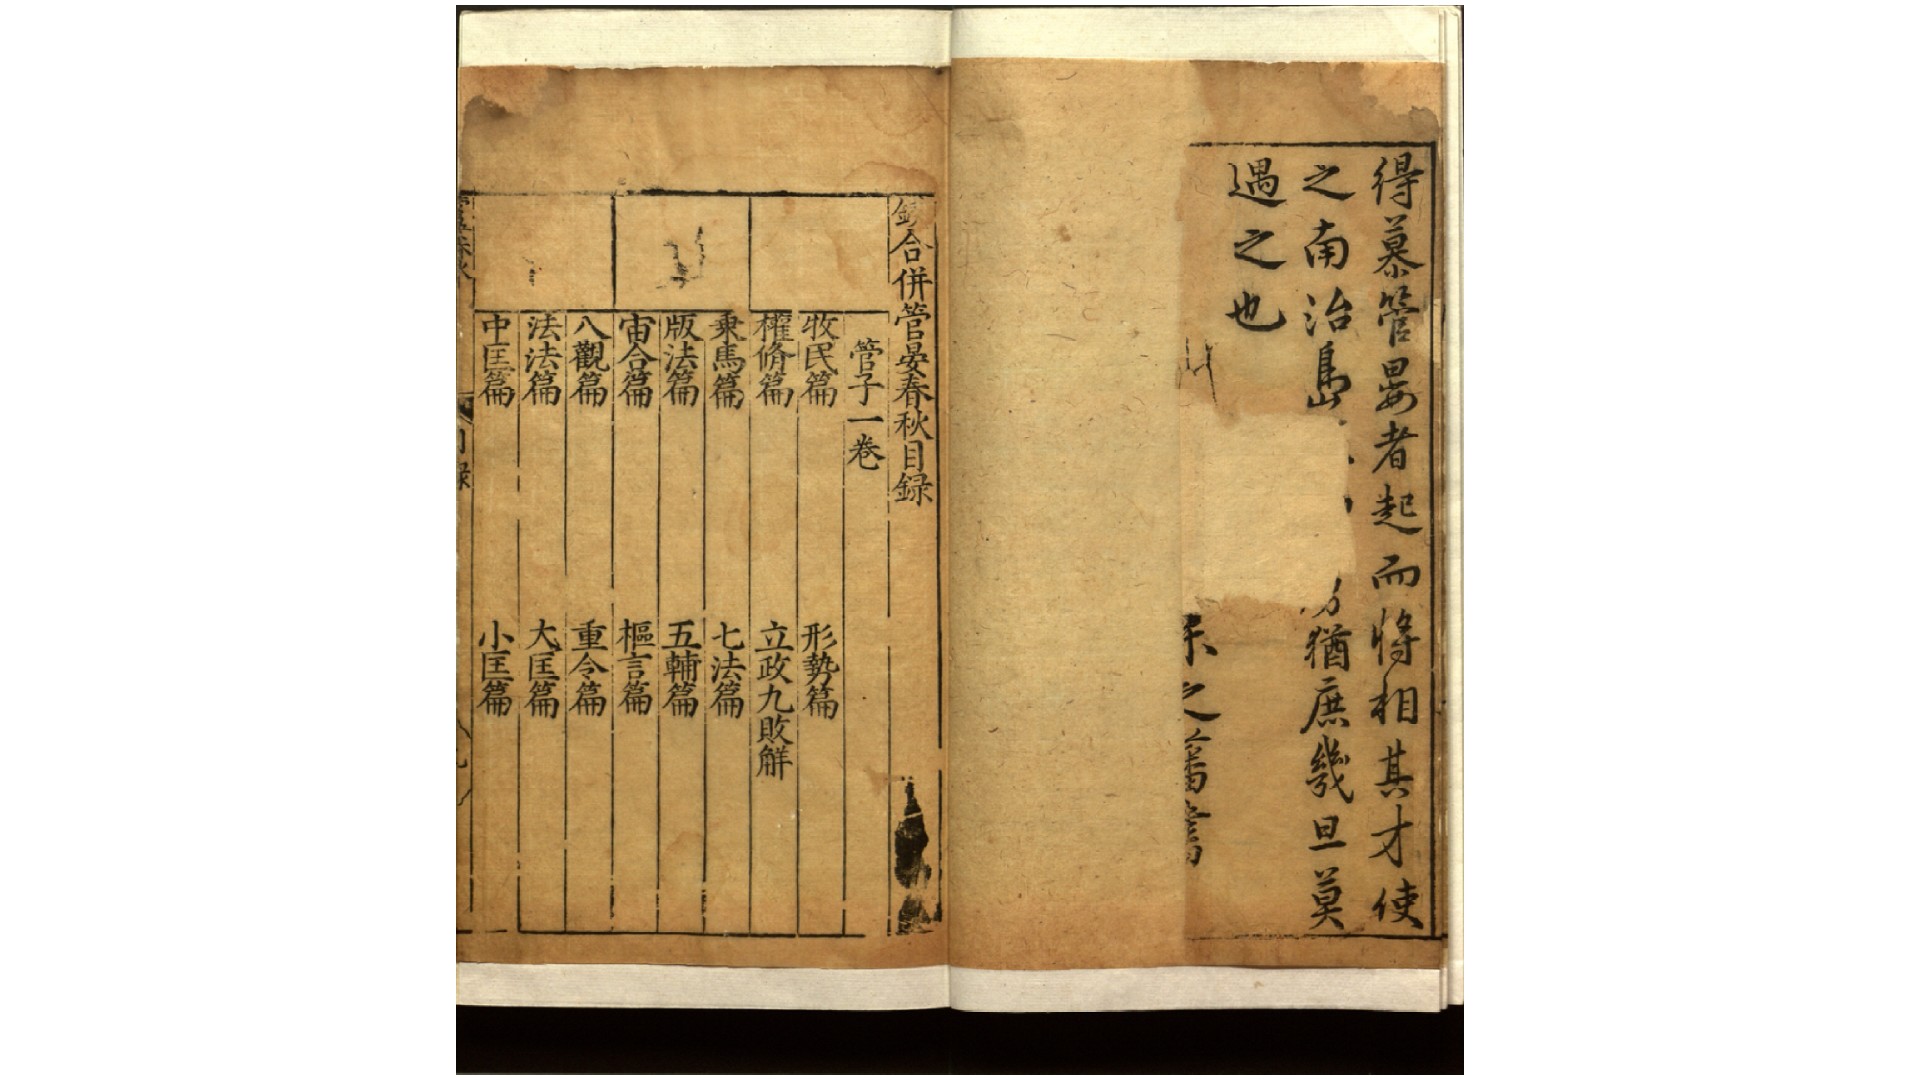 得慕管晏者起而將相其才使
之南治島猶庶幾旦莫
遇之也
之
合併管晏春秋目録
管子一巻
牧民篇 形勢篇
權脩篇 立政九敗解
乗馬篇 七法篇
版法篇 五輔篇
宙合篇 樞言篇
八觀篇 重令篇
法法篇 大匡篇
中匡篇 小匡篇